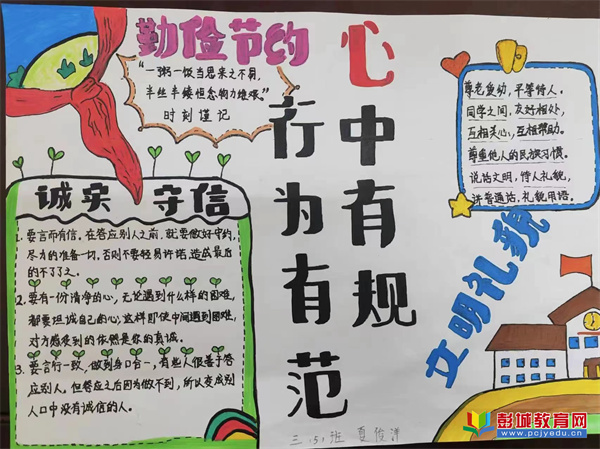 勤俭节约
“一粥一饭当思来之不易,
半丝半缕恒念物力维艰。”
时刻谨记
心中有规
行为有范
尊老爱幼，平等待人。
同学之间，友好相处，
互相关心，互相帮助。
尊重他人的民族习惯。
说话文明，待人礼貌，
讲普通话，礼貌用语。
文明礼貌
诚实 守信
1. 要言而有信。在答应别人之前，就要做好守约,
尽力的准备一切，否则不要轻易许诺，造成最后
的不了了之。
2. 要有一份清净的心，无论遇到什么样的困难，
都要坦诚自己的心，这样即使中间遇到困难，
对方感受到的依然是你的真诚。
3. 要言行一致，做到身口合一，有些人很善于答
应别人，但答应之后因为做不到，所以变成别
人口中没有诚信的人。
三（5）班 夏俊洋
彭城教育网
www.pcjyedu.cn